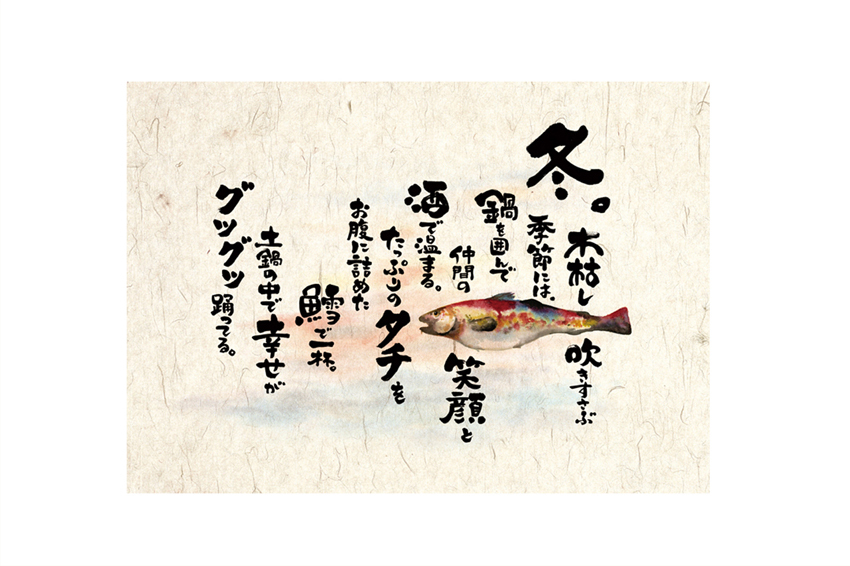 冬。
木枯し吹きすさぶ
季節には、
鍋を囲んで
仲間の笑顔と
酒で温まる。
たっぷりのタチを
お腹に詰めた
鱈で一杯。
土鍋の中で幸せが
グツグツ踊ってる。